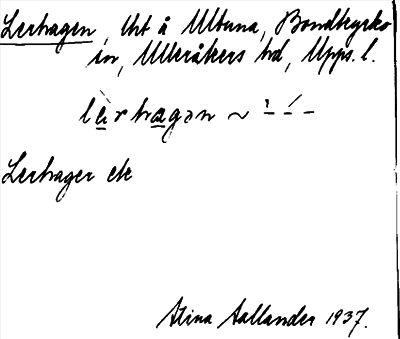 Lerhagen, tkt å Ultuna, Bondkyrko
sn, Ulleråkers hd, Upps. l.
lèrhagən ~
Lerhager etc
Stina Aallander 1937.